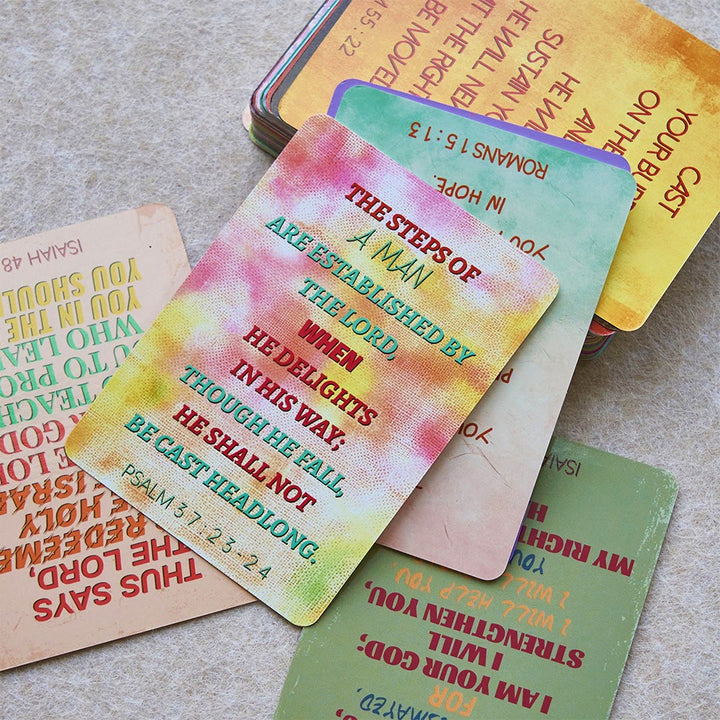 THE STEPS OF
A MAN
ARE ESTABLISHED BY
THE LORD,
WHEN
HE DELIGHTS
IN HIS WAY;
THOUGH HE FALL,
HE SHALL NOT
BE CAST HEADLONG.
PSALM 37:23-24
CAST
YOUR BUR
ON THE
AND
HE WILL
SUSTAIN YO
HE WILL NEV
THE RIGHT
BE MOVED
55:22
IN HOPE,
ROMANS 15:13
THUS SAYS
THE LORD,
REDEEME
HOLY
ISRAE
GOD
TEACH
TO PRO
WHO LEA
YOU IN THE
YOU SHOUL
ISAIAH 48
FOR
I AM YOUR GOD;
I WILL
STRENGTHEN YOU,
I WILL HELP YOU
YOU
MY RIGHT
ISAIA